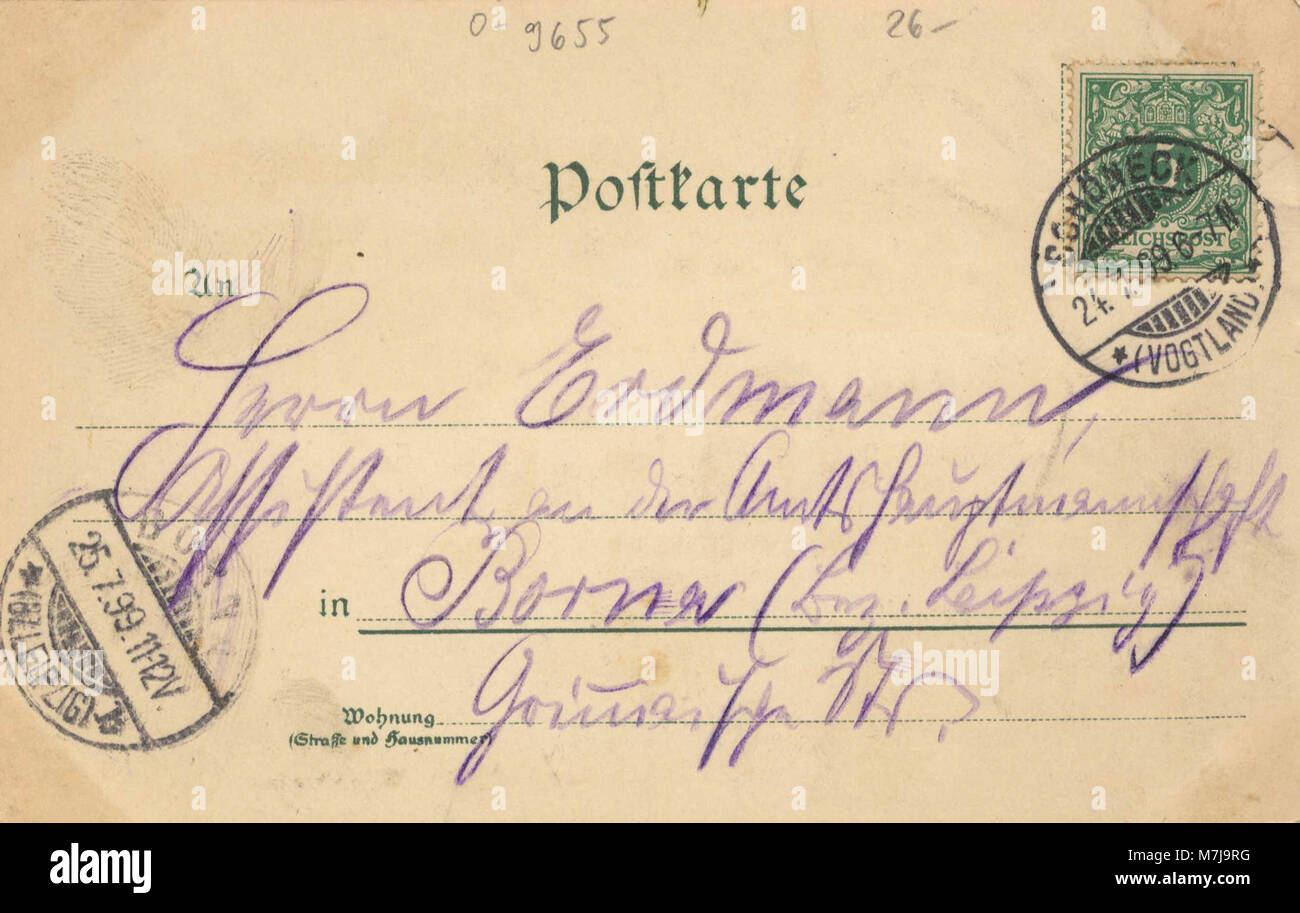 0- 9655 26-
Postkarte
5
REICHSPOST
SCHÖNECK
24. 7. 99 6-7N.
* (VOGTLAND)
An
Herrn Erdmann,
Assistent an der Amtshauptmannschaft
in Borna (Bez. Leipzig)
Wohnung Grimmaische Str.
(Straße und Hausnummer)
BORNA
25.7.99. 11-12V.
*(BZ. LEIPZIG)
a alamy
alamy
Image ID: M7J9RG
www.alamy.com